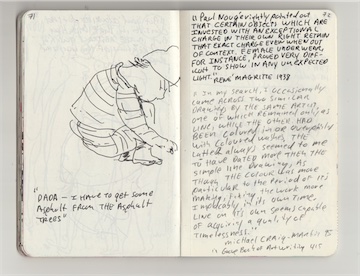 71
"DADA – I HAVE to get some
Asphalt FROM THE Asphalt
TREES"
72
"Paul Nougé rightly pointed out
THAT CERTAIN OBJECTS WHICH ARE
INVESTED WITH AN EXCEPTIONAL
CHARGE IN THEIR OWN RIGHT RETAIN
THAT EXACT CHARGE EVEN WHEN OUT
OF CONTEXT. FEMALE UNDERWEAR,
FOR INSTANCE, PROVED VERY DIFF-
ICULT TO SHOW IN ANY UNEXPECTED
LIGHT" RENÉ MAGRITTE 1938
"In my search, I occasionally
come ACROSS TWO SIMILAR
DRAWINGS BY THE SAME ARTIST,
one of which REMAINED only as
LINE, WHILE THE OTHER HAD
BEEN COLOURED in or overpainted
with coloured washes. THE
LATTER always seemed to me
TO HAVE DATED MORE THEN THE
simple line DRAWING, AS
THOUGH THE COLOUR WAS MORE
PARTICULAR TO THE PERIOD OF ITS
MAKING, FIXING THE WORK MORE
IMPLACABLY IN ITS OWN TIME.
LINE ON ITS OWN SEEMS CAPABLE
OF ACQUIRING A QUALITY OF
TIMELESSNESS."
michael CRAIG-MARTIN 95